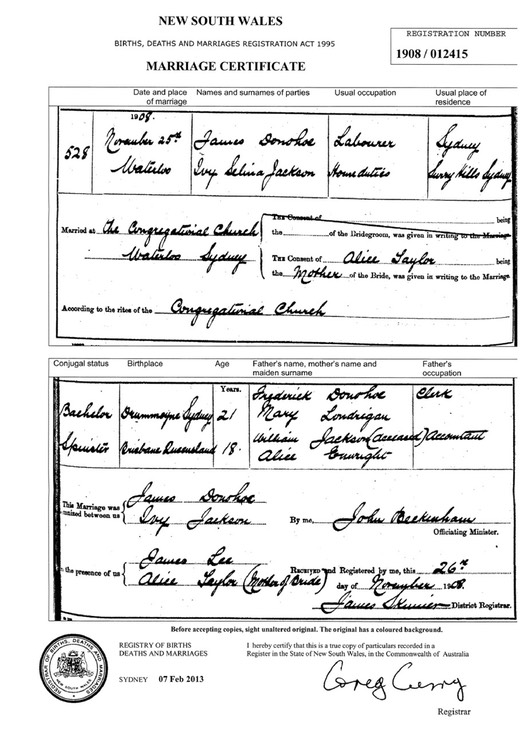 NEW SOUTH WALES
REGISTRATION NUMBER
BIRTHS, DEATHS AND MARRIAGES REGISTRATION ACT 1995
1908 / 012415
MARRIAGE CERTIFICATE
Date and place of marriage Names and surnames of parties Usual occupation Usual place of residence
1908.
528 November 25th James Donohoe Labourer Sydney
Waterloo Ivy Selina Jackson Home duties Surry Hills Sydney
The Consent of being
Married at The Congregational Church the of the Bridegroom, was given in writing to the Marriage
Waterloo Sydney The Consent of Alice Taylor being
the Mother of the Bride, was given in writing to the Marriage
According to the rites of the Congregational Church
Conjugal status Birthplace Age Father's name, mother's name and maiden surname Father's occupation
Years.
Frederick Donohoe Clerk
Bachelor Drummoyne Sydney 21 Mary Londrigan
Spinster Brisbane Queensland 18. William Jackson (deceased) Accountant
Alice Enwright
This Marriage was united between us James Donohoe
Ivy Jackson By me, John Beckenham
Officiating Minister.
n the presence of us James Lee
Alice Taylor (Mother of Bride) Received and Registered by me, this 26th
day of November 1908.
James Skinner District Registrar.
Before accepting copies, sight unaltered original. The original has a coloured background.
REGISTRAR OF BIRTHS, DEATHS AND MARRIAGES
NEW SOUTH WALES
REGISTRY OF BIRTHS
DEATHS AND MARRIAGES
I hereby certify that this is a true copy of particulars recorded in a
Register in the State of New South Wales, in the Commonwealth of Australia
SYDNEY 07 Feb 2013
Greg Curry
Registrar